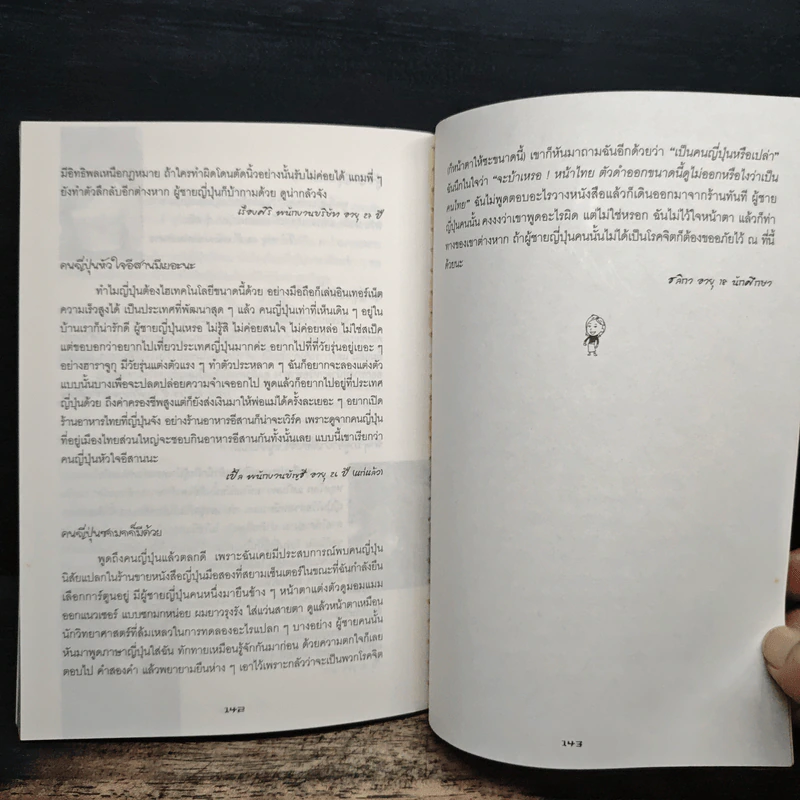 มีอิทธิพลเหนือกฎหมาย ถ้าใครทำผิดโดนตัดนิ้วอย่างนั้นรับไม่ค่อยได้ แถมพี่ ๆ
ยังทำตัวลึกลับอีกต่างหาก ผู้ชายญี่ปุ่นก็บ้ากามด้วย ดูน่ากลัวจัง
เรืองศิริ พนักงานบริษัท อายุ ๒๖ ปี
คนญี่ปุ่นหัวใจอีสานมีเยอะนะ
ทำไมญี่ปุ่นต้องไฮเทคโนโลยีขนาดนี้ด้วย อย่างมือถือก็เล่นอินเทอร์เน็ต
ความเร็วสูงได้ เป็นประเทศที่พัฒนาสุด ๆ แล้ว คนญี่ปุ่นเท่าที่เห็นเดิน ๆ อยู่ใน
บ้านเราก็น่ารักดี ผู้ชายญี่ปุ่นเหรอ ไม่รู้สิ ไม่ค่อยสนใจ ไม่ค่อยหล่อ ไม่ใช่สเป็ค
แต่ขอบอกว่าอยากไปเที่ยวประเทศญี่ปุ่นมากค่ะ อยากไปที่ที่วัยรุ่นอยู่เยอะ ๆ
อย่างฮาราจูกุ มีวัยรุ่นแต่งตัวแรง ๆ ทำตัวประหลาด ๆ ฉันก็อยากจะลองแต่งตัว
แบบนั้นบางเพื่อจะปลดปล่อยความจำเจออกไป พูดแล้วก็อยากไปอยู่ที่ประเทศ
ญี่ปุ่นด้วย ถึงค่าครองชีพสูงแต่ก็ยังส่งเงินมาให้พ่อแม่ได้ครั้งละเยอะ ๆ อยากเปิด
ร้านอาหารไทยที่ญี่ปุ่นจัง อย่างร้านอาหารอีสานก็น่าจะเวิร์ค เพราะดูจากคนญี่ปุ่น
ที่อยู่เมืองไทยส่วนใหญ่จะชอบกินอาหารอีสานกันทั้งนั้นเลย แบบนี้เขาเรียกว่า
คนญี่ปุ่นหัวใจอีสานนะ
เปิ้ล พนักงานบัญชี อายุ ๒๖ ปี (แก่แล้ว)
คนญี่ปุ่นซกมกก็มีด้วย
พูดถึงคนญี่ปุ่นแล้วตลกดี เพราะฉันเคยมีประสบการณ์พบคนญี่ปุ่น
นิสัยแปลกในร้านขายหนังสือญี่ปุ่นมือสองที่สยามเซ็นเตอร์ในขณะที่ฉันกำลังยืน
เลือกการ์ตูนอยู่ มีผู้ชายญี่ปุ่นคนหนึ่งมายืนข้าง ๆ หน้าตาแต่งตัวดูมอมแมม
ออกแนวเซอร์ แบบซกมกหน่อย ผมยาวรุงรัง ใส่แว่นสายตา ดูแล้วหน้าตาเหมือน
นักวิทยาศาสตร์ที่ล้มเหลวในการทดลองอะไรแปลก ๆ บางอย่าง ผู้ชายคนนั้น
หันมาพูดภาษาญี่ปุ่นใส่ฉัน ทักทายเหมือนรู้จักกันมาก่อน ด้วยความตกใจก็เลย
ตอบไป คำสองคำ แล้วพยายามยืนห่าง ๆ เอาไว้เพราะกลัวว่าจะเป็นพวกโรคจิต
142
(ก็หน้าตาให้ซะขนาดนี้) เขาก็หันมาถามฉันอีกด้วยว่า “เป็นคนญี่ปุ่นหรือเปล่า”
ฉันนึกในใจว่า “จะบ้าเหรอ ! หน้าไทย ตัวดำออกขนาดนี้ดูไม่ออกหรือไงว่าเป็น
คนไทย” ฉันไม่พูดตอบอะไรวางหนังสือแล้วก็เดินออกมาจากร้านทันที ผู้ชาย
ญี่ปุ่นคนนั้น คงงงว่าเขาพูดอะไรผิด แต่ไม่ใช่หรอก ฉันไม่ไว้ใจหน้าตา แล้วก็ท่า
ทางของเขาต่างหาก ถ้าผู้ชายญี่ปุ่นคนนั้นไม่ได้เป็นโรคจิตก็ต้องขออภัยไว้ ณ ที่นี้
ด้วยนะ
ชลิกา อายุ ๑๘ นักศึกษา
143